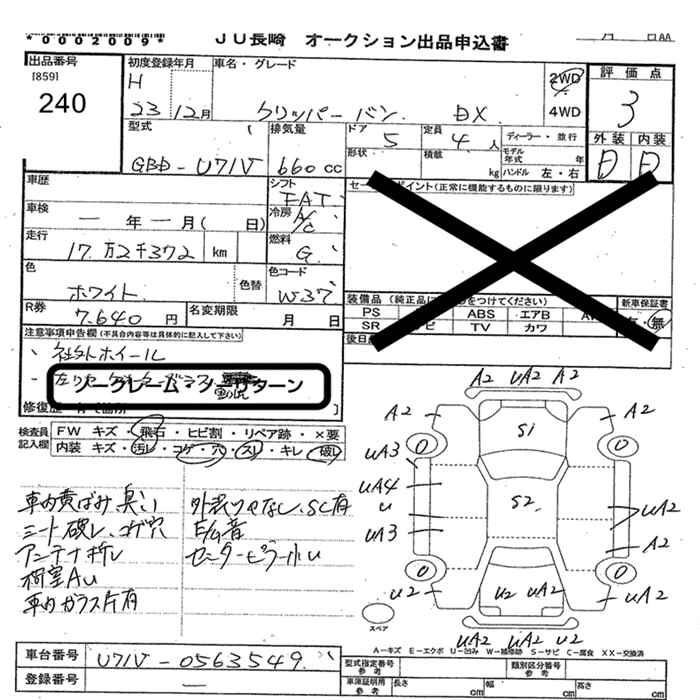 *0002009*
JU長崎 オークション出品申込書
月 日AA
出品番号
[859]
240
初度登録年月
H
23 12月
車名・グレード
クリッパー バン DX
2WD
4WD
評価点
3
外装 内装
D D
型式
GBD-U71V
排気量
660cc
ドア
5
定員
4人
ディーラー・並行
形状
積載
kg
モデル年式 年
ハンドル 左・右
車歴
シフト
FAT
車検
ー年ー月( 日)
冷房
A/C
走行
17万2千372 km
燃料
G
色
ホワイト
色替
色コード
W37
R券
7.640円
名変期限
月 日
セールスポイント(正常に機能するものに限ります)
装備品
PS
ABS エアB
SR
TV カワ
新車保証書
有・無
注意事項申告欄(不具合内容等は具体的に記入して下さい)
、社外ホイール
ノークレーム・ノーリターン
修復歴
検査員記入欄
FW キズ・飛石・ヒビ割・リペア跡・×要
内装 キズ・汚レ・コゲ・穴・スレ・キレ・破レ
車内黄ばみ臭い 外装ツヤなし、SC有
シート破レ、コゲ穴 E/G音
アンテナ折レ センターピラー小U
荷室AU
車内ガラス片有
A2 UA2 A2
A2 S1 A2
UA3 0 0
UA4
U S2
UA3 UA2
A2
0 0
U2 U2 UA2 UA2
UA2 UA2 U2
スペア
A-キズ E-エクボ U-凹み W-補修跡 S-サビ C-腐食 XX-交換済
車台番号
U71V-0563549
登録番号
ー
型式指定番号 参考
類別区分番号 参考
車庫証明用 参考
長さ cm
幅 cm
高さ cm